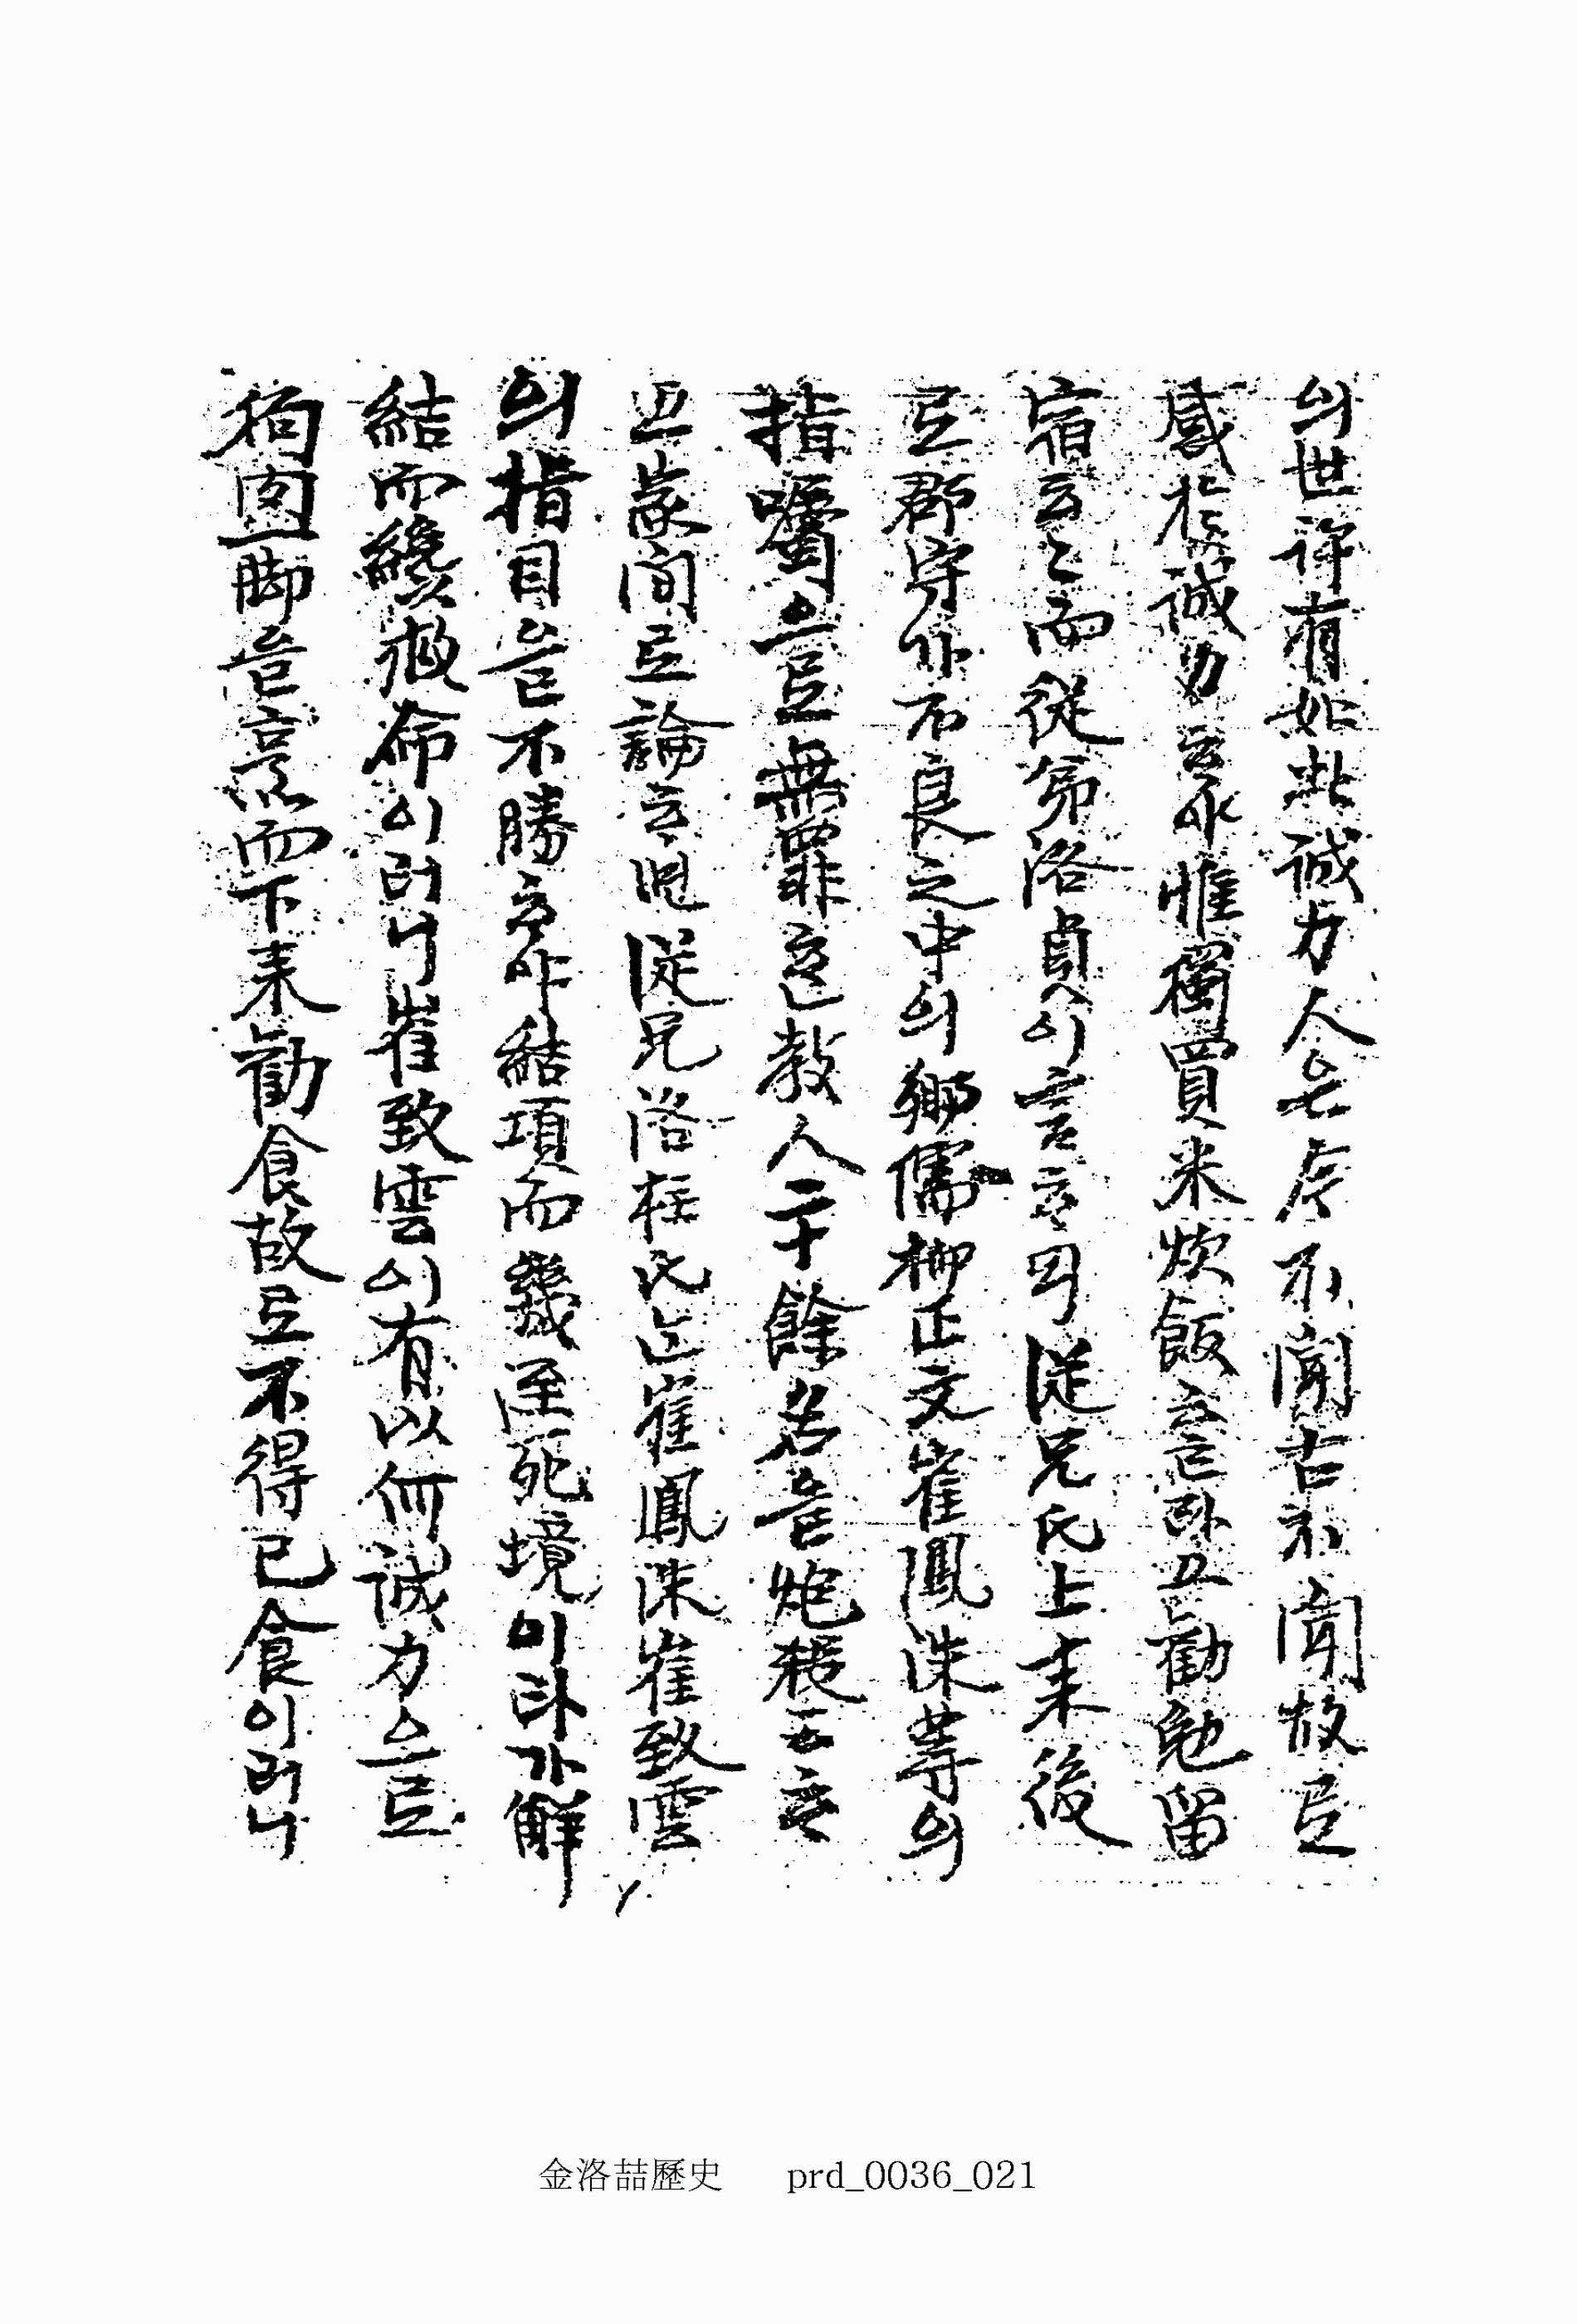 의世許有如此誠力人은今不聞古不聞故로
感於誠力하야惟獨買米炊飯하야勸勉留
宿云云而從弟洛貞이言하되從兄氏上来後
로郡守가不良之中의鄉儒柳正文崔鳳洙等의
指囑으로無罪한敎人二十餘名을炮殺云云
고家間로論하면從兄洛柱氏는崔鳳洙崔致雲
의指目을不勝하야結項而幾至死境이다가解
結而纔救命이러니崔致雲이有以何誠力으로
狗四脚을烹而下来勸食故로不得已食이러니
金洛喆歷史 prd_0036_021